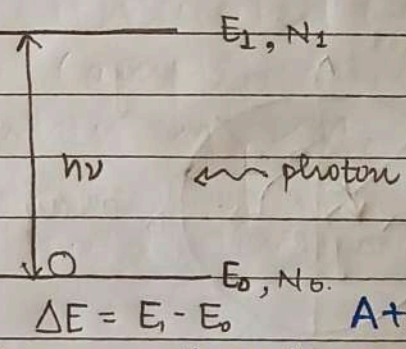 E₁, N₁
hν
photon
E₀, N₀.
ΔE = E₁ - E₀
A+